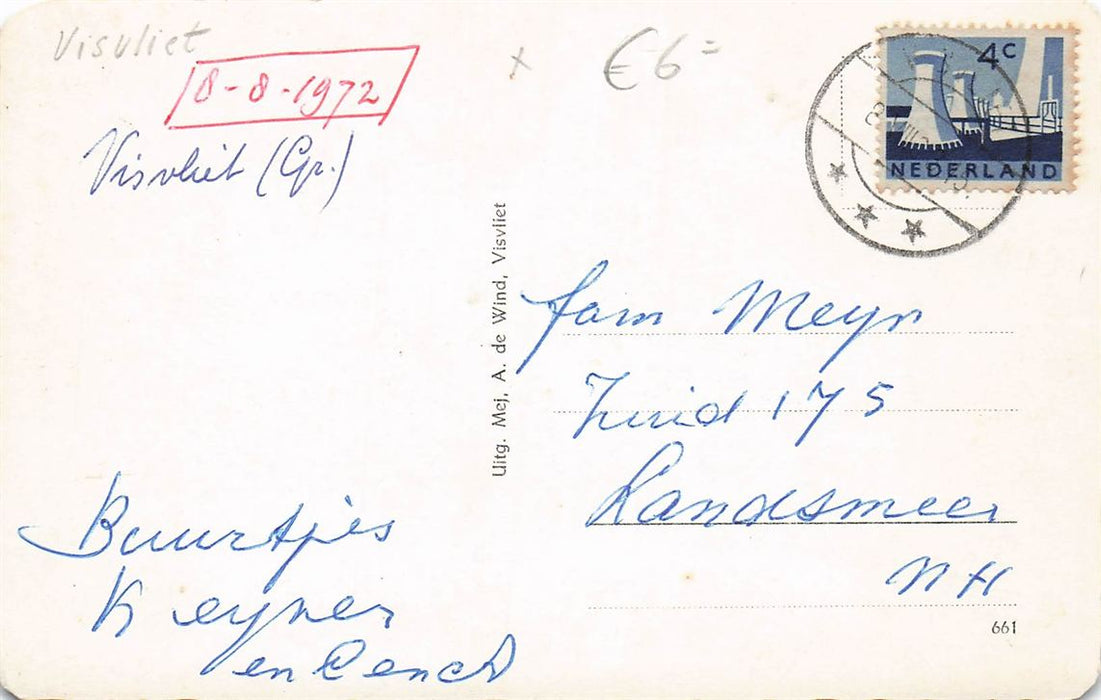 Visvliet
8-8-1972
Visvliet (Gr.)
€6=
4c
NEDERLAND
Uitg. Mej. A. de Wind, Visvliet
fam Meyn
Zuid 175
Landsmeer
NH
Buurtjes
Keyner
en
661